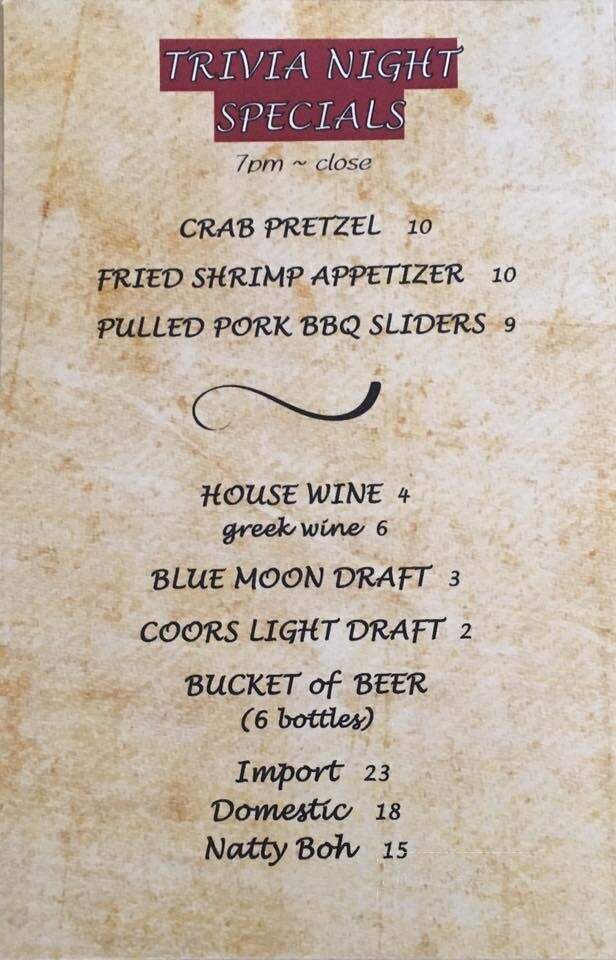 TRIVIA NIGHT
SPECIALS
7pm ~ close
CRAB PRETZEL 10
FRIED SHRIMP APPETIZER 10
PULLED PORK BBQ SLIDERS 9
HOUSE WINE 4
greek wine 6
BLUE MOON DRAFT 3
COORS LIGHT DRAFT 2
BUCKET of BEER
(6 bottles)
Import 23
Domestic 18
Natty Boh 15